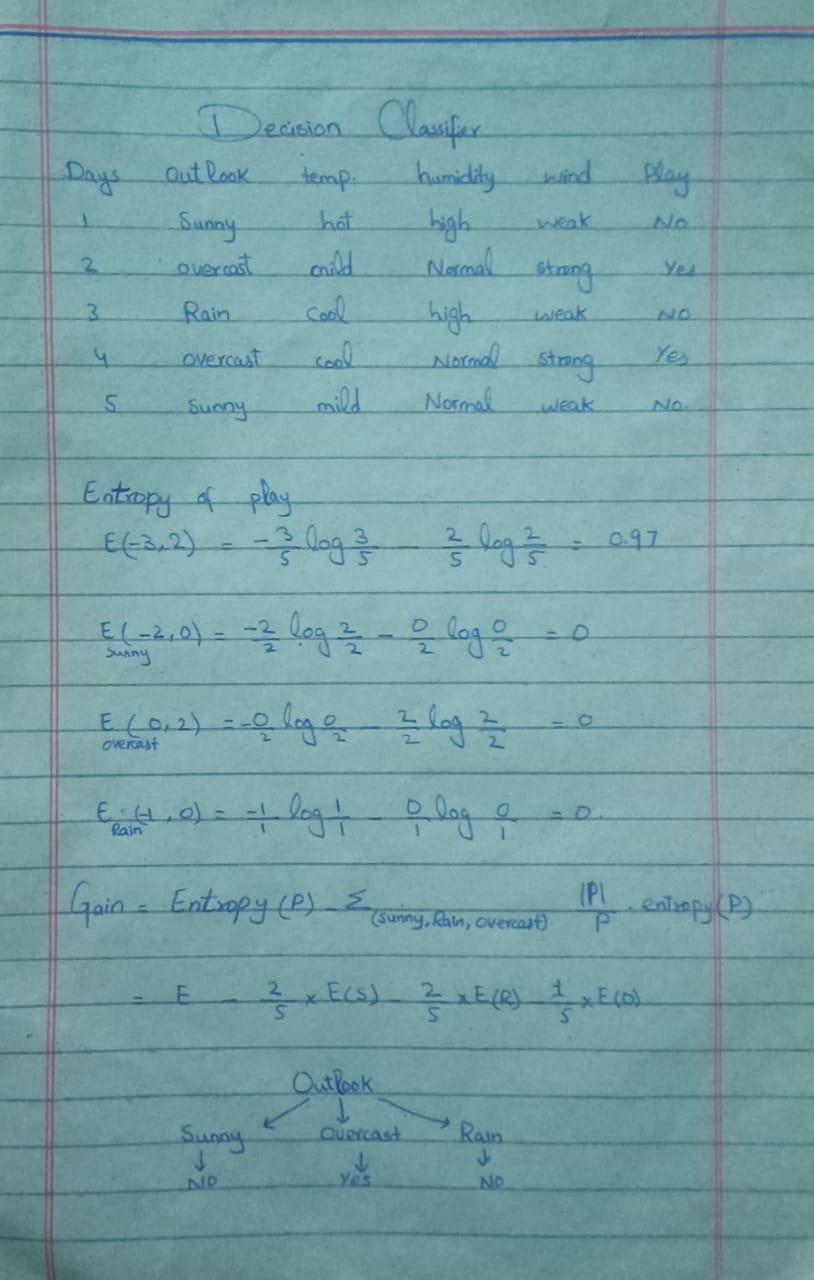 Decision Classifier
Days outlook temp. humidity wind Play
1 Sunny hot high weak No
2 overcast mild Normal strong Yes
3 Rain cool high weak NO
4 overcast cool Normal strong Yes
5 Sunny mild Normal weak No.
Entropy of play
E(-3,2) = -3/5 log 3/5 - 2/5 log 2/5 = 0.97
E(-2,0) = -2/2 log 2/2 - 0/2 log 0/2 = 0
sunny
E(0,2) = -0/2 log 0/2 - 2/2 log 2/2 = 0
overcast
E(-1,0) = -1/1 log 1/1 - 0/1 log 0/1 = 0.
Rain
Gain = Entropy (P) - Σ (sunny, Rain, overcast) |P|/P . entropy(P)
= E - 2/5 × E(S) - 2/5 × E(R) - 1/5 × E(O)
Outlook
Sunny overcast Rain
NO Yes NO